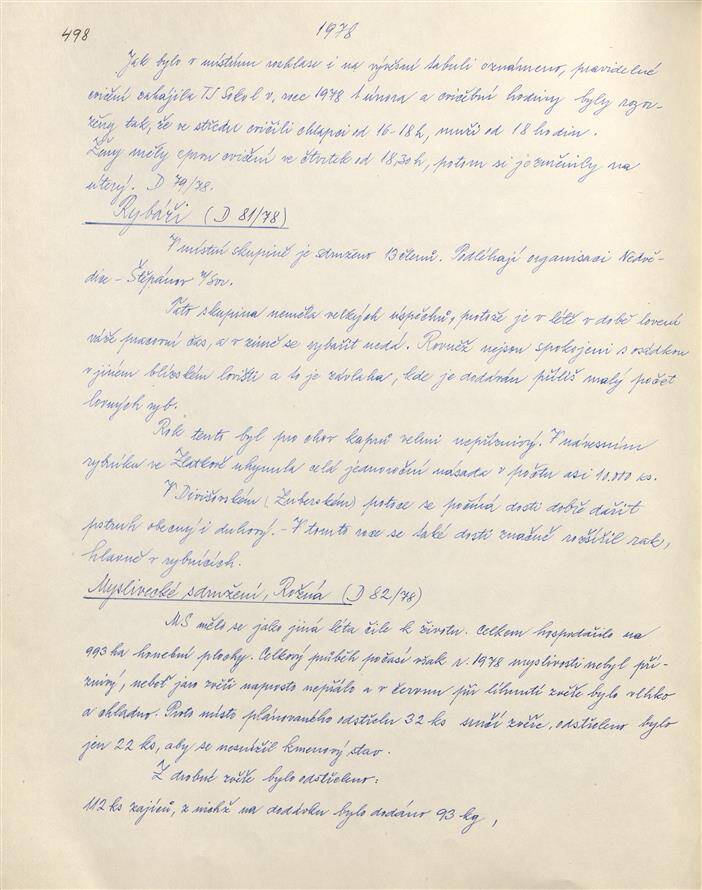 498
1978
Jak bylo v místním rozhlase i na vývěsní tabuli oznámeno, pravidelné
cvičení zahájila TJ Sokol v roce 1978 1 února a cvičební hodiny byly rozvr-
ženy tak, že ve středu cvičili chlapci od 16-18 h, muži od 18 hodin.
Ženy měly cvičení ve čtvrtek od 18,30 h, potom si je změnily na
úterý. D 79/78.
Rybáři (D 81/78)
V místní skupině je sdruženo 13 členů. Podléhají organisaci Nedvě-
dice - Štěpánov n/Svr.
Tato skupina neměla velkých úspěchů, protože je v létě v době lovení
váže pracovní čas, a v zimě se rybařit nedá. Rovněž nejsou spokojeni s osádkou
v jiném blízském lovišti a to je závlaha, kde je dodáván příliš malý počet
lovných ryb.
Rok tento byl pro chov kaprů velmi nepříznivý. V návesním
rybníku ve Zlatkově uhynula celá jednoroční násada v počtu asi 10.000 ks.
V Divišovském (Zuberském) potoce se počíná dosti dobře dařit
pstruh obecný i duhový. - V tomto roce se také dosti značně rozšířil rak,
hlavně v rybnících.
Myslivecké sdružení, Rožná (D 82/78)
MS mělo se jako jiná léta čile k životu. Celkem hospodařilo na
993 ha honební plochy. Celkový průběh počasí však r. 1978 myslivosti nebyl pří-
znivý, neboť jaro zvěři naprosto nepřálo a v červnu při líhnutí zvěře bylo vlhko
a chladno. Proto místo plánovaného odstřelu 32 ks srnčí zvěře, odstřeleno bylo
jen 22 ks, aby se nesnížil kmenový stav.
Z drobné zvěře bylo odstřeleno:
112 ks zajíců, z nichž na dodávku bylo dodáno 93 kg,